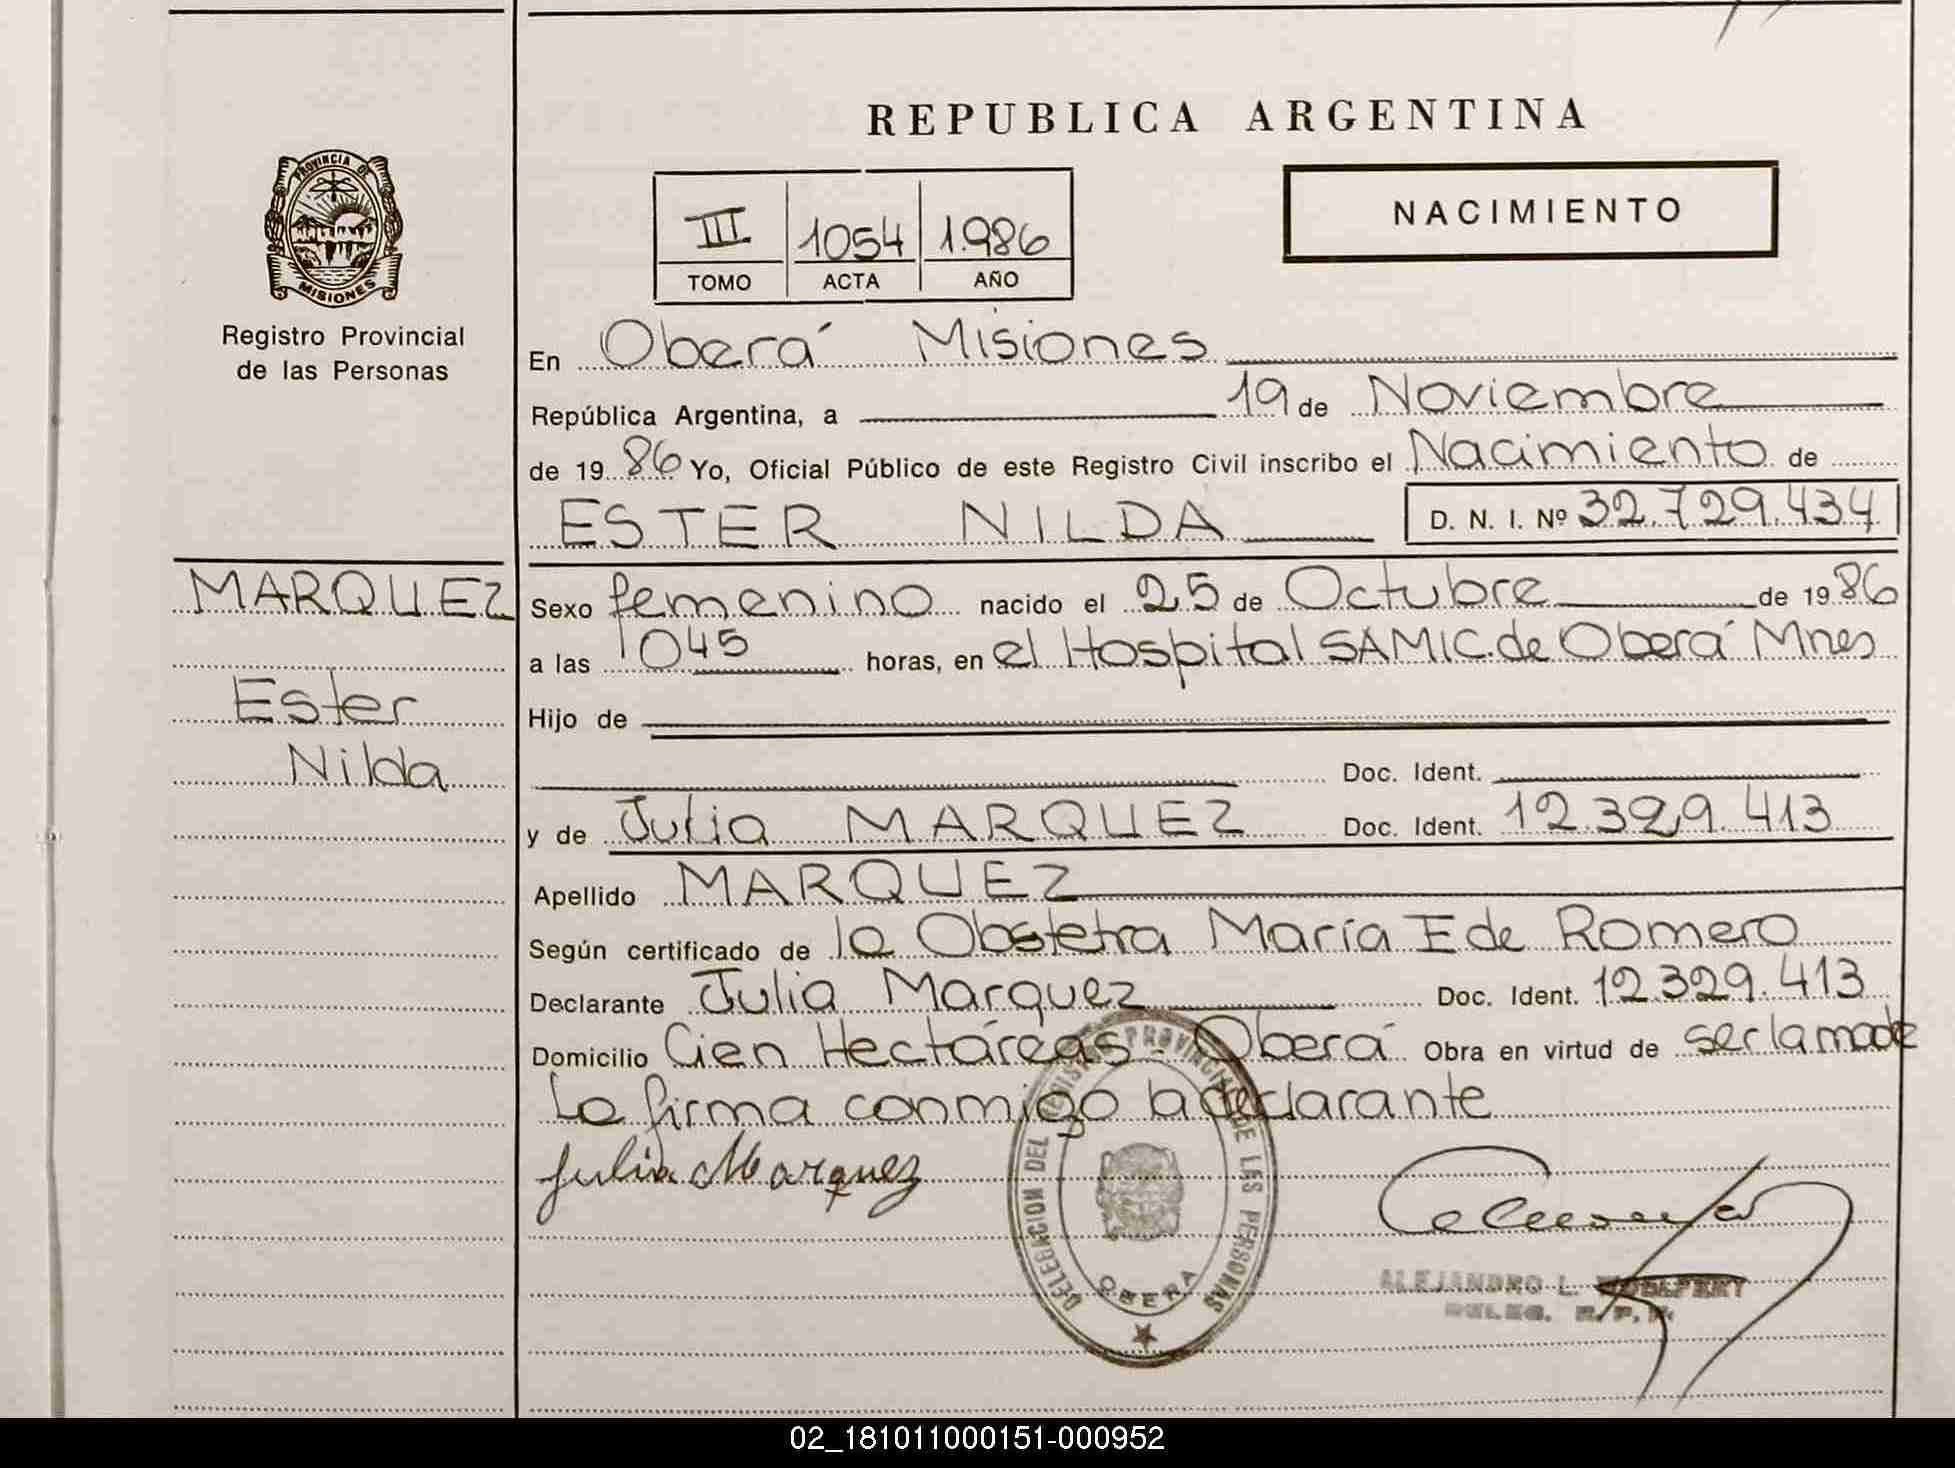 REPUBLICA ARGENTINA
PROVINCIA DE
MISIONES
Registro Provincial
de las Personas
III 1054 1.986
TOMO ACTA AÑO
NACIMIENTO
En Oberá Misiones
República Argentina, a 19 de Noviembre
de 19 86 Yo, Oficial Público de este Registro Civil inscribo el Nacimiento de
ESTER NILDA D. N. I. Nº 32.729.434
MARQUEZ
Ester
Nilda
Sexo femenino nacido el 25 de Octubre de 19 86
a las 1045 horas, en el Hospital SAMIC. de Oberá Mnes
Hijo de
Doc. Ident.
y de Julia MARQUEZ Doc. Ident. 12.329.413
Apellido MARQUEZ
Según certificado de la Obstetra María E de Romero
Declarante Julia Marquez Doc. Ident. 12.329.413
Domicilio Cien Hectáreas - Oberá Obra en virtud de ser la madre
La firma conmigo la declarante
Julia Marquez
DELEGACION DEL REGISTRO PROVINCIAL DE LAS PERSONAS
OBERA
ALEJANDRO L.
DELEG. R. P. P.
02_181011000151-000952